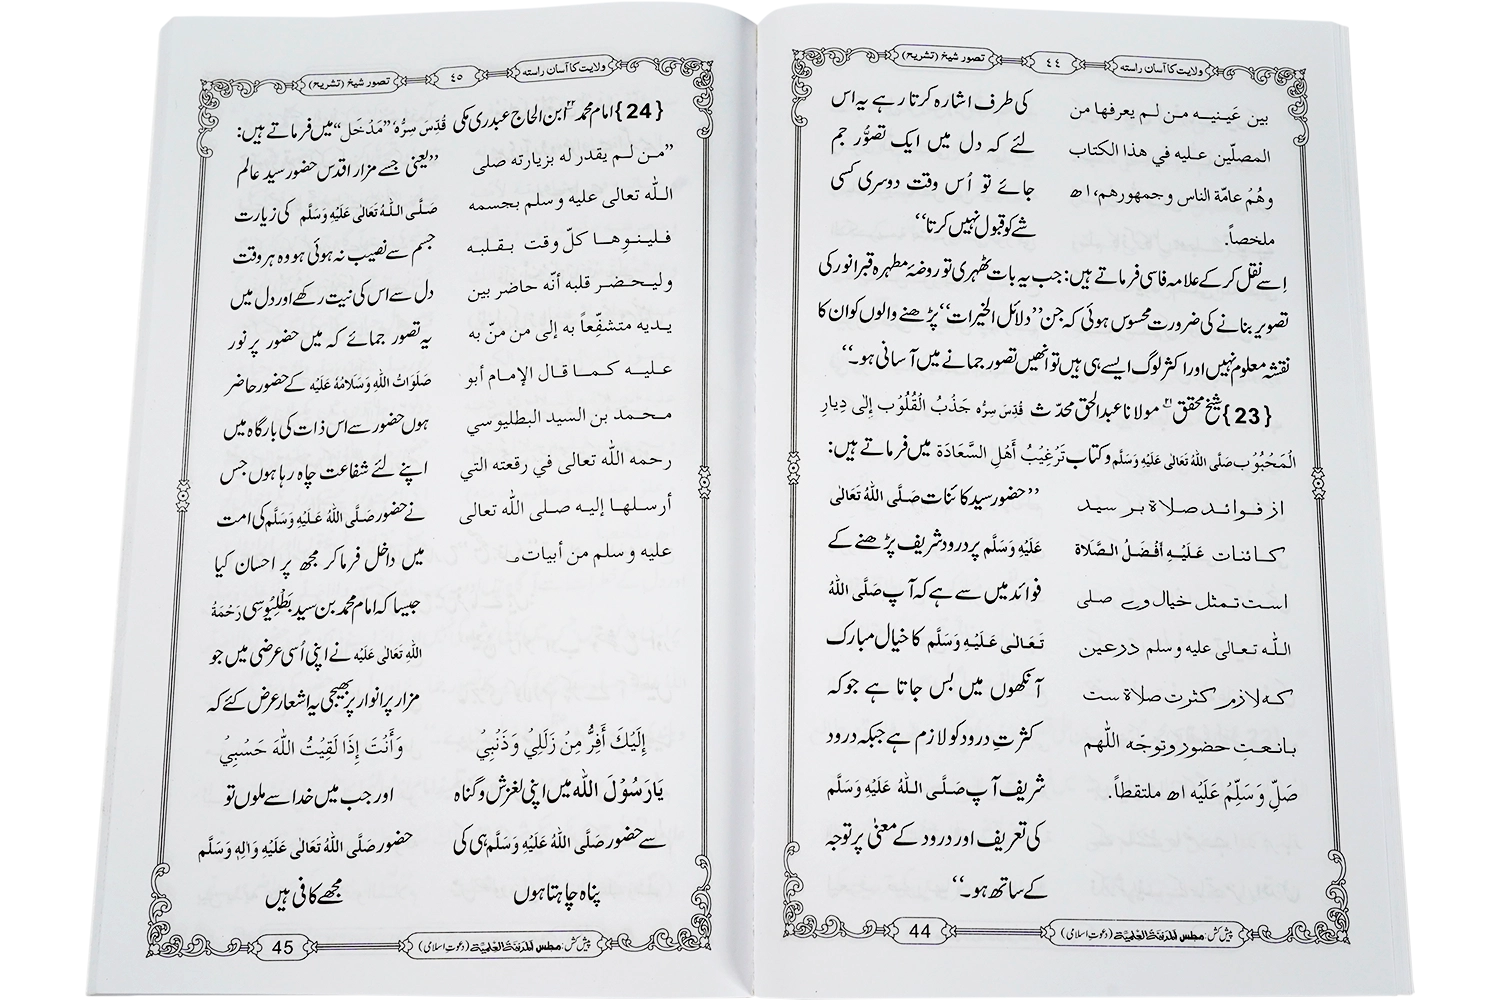 ولایت کا آسان راستہ ٤٤ تصور شیخ (تشریح)
بين عَينيه من لم يعرفها من
المصلّين عليه في هذا الكتاب
وهُمُ عامّة الناس وجمهورهم، اھ
ملخصاً.
کی طرف اشارہ کرتا رہے یہ اس
لئے کہ دل میں ایک تصوُّر جم
جائے تو اُس وقت دوسری کسی
شے کو قبول نہیں کرتا‘‘
اِسے نقل کر کے علامہ فاسی فرماتے ہیں: جب یہ بات ٹھہری تو روضۂ مطہرہ قبر انور کی
تصویر بنانے کی ضرورت محسوس ہوئی کہ جن ’’دلائل الخیرات‘‘ پڑھنے والوں کو ان کا
نقشہ معلوم نہیں اور اکثر لوگ ایسے ہی ہیں تو انھیں تصور جمانے میں آسانی ہو۔‘‘
{23} شیخ محقق مولانا عبدالحق محدّث قُدِّسَ سِرُّہ جَذْبُ الْقُلُوْب اِلٰی دِیارِ
الْمَحْبُوْب صَلَّی اللہُ تَعَالٰی عَلَیْہِ وَسَلَّم و کتاب تَرْغِیْبُ أَھْلِ السَّعَادَۃ میں فرماتے ہیں:
از فوائد صلاة بر سید
کائنات عَلَیْہِ أَفْضَلُ الصَّلَاۃ
است تمثل خیال وے صلی
اللہ تعالی علیہ وسلم درعین
کہ لازم کثرت صلاۃ ست
بانعتِ حضور و توجّہ اللّٰھم
صَلِّ وَسَلِّمْ عَلَیْہ اھ ملتقطاً.
’’حضور سید کائنات صَلَّی اللہُ تَعَالٰی
عَلَیْہِ وَسَلَّم پر درود شریف پڑھنے کے
فوائد میں سے ہے کہ آپ صَلَّی اللہُ
تَعَالٰی عَلَیْہِ وَسَلَّم کا خیال مبارک
آنکھوں میں بس جاتا ہے جو کہ
کثرتِ درود کو لازم ہے جبکہ درود
شریف آپ صَلَّی اللہُ عَلَیْہِ وَسَلَّم
کی تعریف اور درود کے معنیٰ پر توجہ
کے ساتھ ہو۔‘‘
پیش کش: مجلس المدینۃ العلمیۃ (دعوتِ اسلامی) 44
ولایت کا آسان راستہ ٤٥ تصور شیخ (تشریح)
{24} امام محمد ابن الحاج عبدری مکی قُدِّسَ سِرُّہٗ ’’مَدْخَل‘‘ میں فرماتے ہیں:
’’من لم يقدر له بزيارته صلى
اللّٰه تعالى عليه وسلم بجسمه
فلينوِها كلّ وقت بقلبه
وليحضر قلبه أنّه حاضر بين
يديه متشفّعاً به إلى من منّ به
عليه كما قال الإمام أبو
محمد بن السيد البطليوسي
رحمه اللّٰه تعالى في رقعته التي
أرسلها إليه صلى اللّٰه تعالى
عليه وسلم من أبيات
’’یعنی جسے مزار اقدس حضور سید عالم
صَلَّی اللہُ تَعَالٰی عَلَیْہِ وَسَلَّم کی زیارت
جسم سے نصیب نہ ہوئی ہو وہ ہر وقت
دل سے اس کی نیت رکھے اور دل میں
یہ تصور جمائے کہ میں حضور پرنور
صَلَوَاتُ اللہِ وَسَلَامُہٗ عَلَیْہ کے حضور حاضر
ہوں حضور سے اس ذات کی بارگاہ میں
اپنے لئے شفاعت چاہ رہا ہوں جس
نے حضور صَلَّی اللہُ عَلَیْہِ وَسَلَّم کی امت
میں داخل فرما کر مجھ پر احسان کیا
جیسا کہ امام محمد بن سید بَطَلْیُوسِی رَحْمَۃُ
اللہِ تَعَالٰی عَلَیْہ نے اپنی اُسی عرضی میں جو
مزار پر انوار پر بھیجی یہ اشعار عرض کئے کہ
إِلَيْكَ أَفِرُّ مِنْ زَلَلِيْ وَذَنْبِيْ وَأَنْتَ إِذَا لَقِيْتُ اللّٰهَ حَسْبِيْ
یَارَسُوْلَ اللّٰہ میں اپنی لغزش و گناہ اور جب میں خدا سے ملوں تو
سے حضور صَلَّی اللہُ عَلَیْہِ وَسَلَّم ہی کی حضور صَلَّی اللہُ تَعَالٰی عَلَیْہِ وَاٰلِہٖ وَسَلَّم
پناہ چاہتا ہوں مجھے کافی ہیں
پیش کش: مجلس المدینۃ العلمیۃ (دعوتِ اسلامی) 45